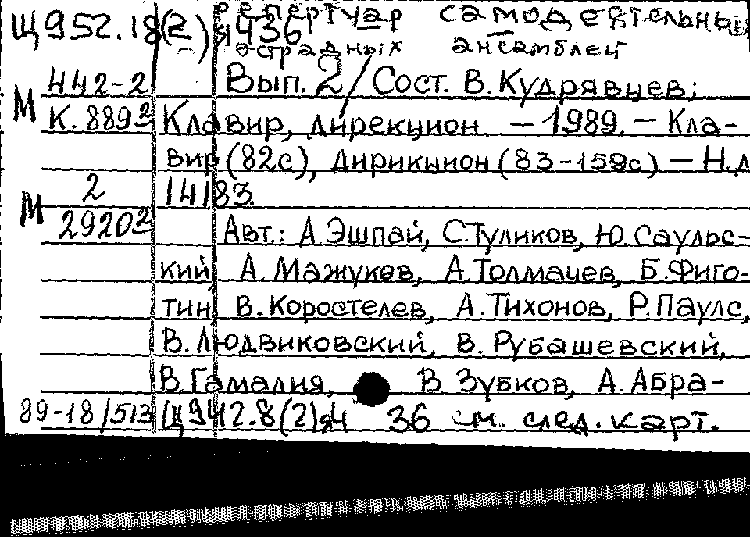 Щ952.18(2)я436 Репертуар самодеятельных
эстрадных ансамблей
Н42-2 Вып. 2/Сост. В.Кудрявцев;
М К.889² Клавир, дирекцион – 1989. – Кла-
вир (82с), дирикцион (83-159с) – Н.д
М 2 14183
2920² Авт.: А.Эшпай, С.Туликов, Ю.Саульс-
кий, А.Мажуков, А.Толмачев, Б.Фиго-
тин, В.Коростелев, А.Тихонов, Р.Паулс,
В.Людвиковский, В.Рубашевский,
В.Гамалия, В.Зубков, А.Абра-
89-18/513 Щ942.8(2)я4 36 см. след. карт.